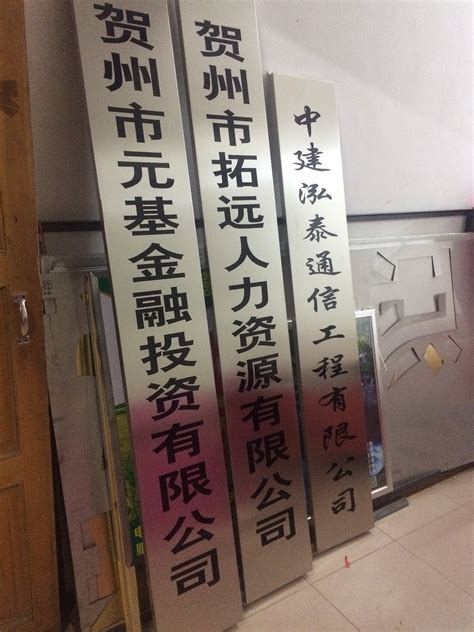 贺州市元基金融投资有限公司
贺州市拓远人力资源有限公司
中建泓泰通信工程有限公司